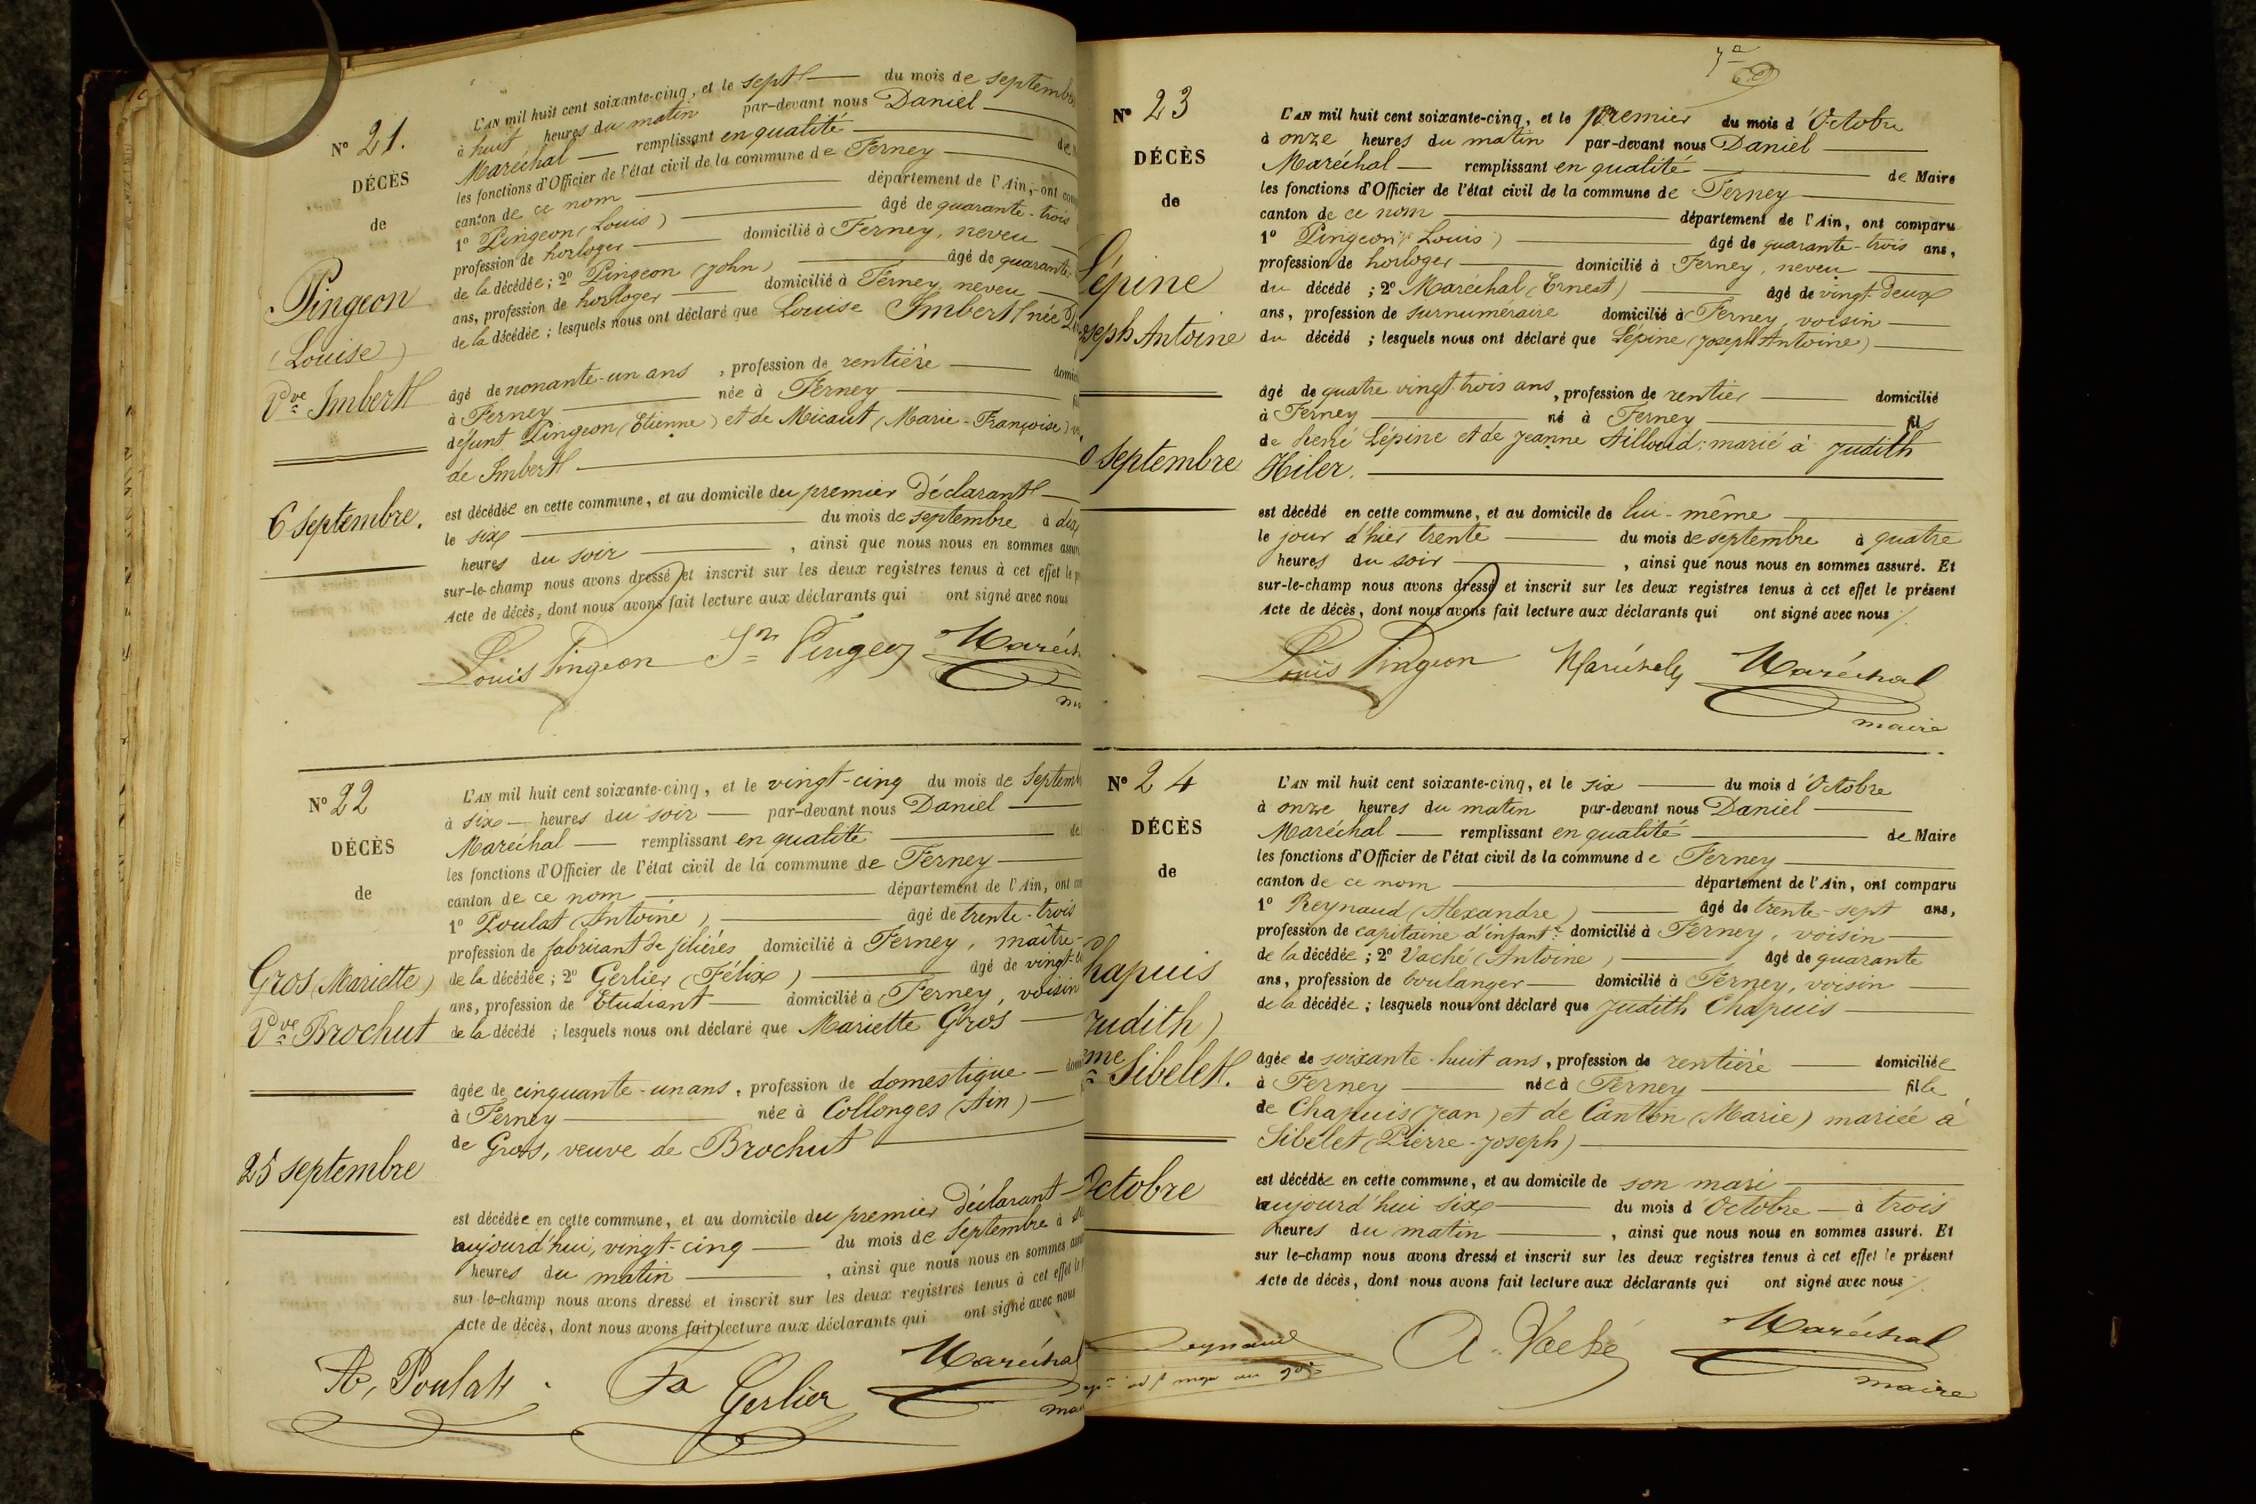 Nº 21.
DÉCÈS
de
Pingeon
(Louise)
Vve Imbert
6 septembre.
L'AN mil huit cent soixante-cinq, et le sept du mois de septembre
à huit heures du matin par-devant nous Daniel
Maréchal remplissant en qualité de
les fonctions d'Officier de l'état civil de la commune de Ferney
canton de ce nom département de l'Ain, ont
1º Pingeon (Louis) âgé de quarante-trois
profession de horloger domicilié à Ferney, neveu
de la décédée; 2º Pingeon (John) âgé de quarante
ans, profession de horloger domicilié à Ferney neveu
de la décédée; lesquels nous ont déclaré que Louise Imbert née
âgé de nonante-un ans, profession de rentière
à Ferney née à Ferney
défunt Pingeon (Etienne) et de Micaut (Marie-Françoise)
de Imbert
est décédée en cette commune, et au domicile du premier Déclarant
le six du mois de septembre à dix
heures du soir, ainsi que nous nous en sommes
sur-le-champ nous avons dressé et inscrit sur les deux registres tenus à cet effet le
Acte de décès, dont nous avons fait lecture aux déclarants qui ont signé avec nous
Louis Pingeon Jn Pingeon Maréch
Nº 22
DÉCÈS
de
Gros (Mariette)
Vve Brochut
25 septembre
L'AN mil huit cent soixante-cinq, et le vingt-cinq du mois de Septemb
à six heures du soir par-devant nous Daniel
Maréchal remplissant en qualité de
les fonctions d'Officier de l'état civil de la commune de Ferney
canton de ce nom département de l'Ain, ont
1º Poulat (Antoine) âgé de trente-trois
profession de fabricant de filières domicilié à Ferney, maître
de la décédée; 2º Gerlier (Félix) âgé de vingt
ans, profession de Etudiant domicilié à Ferney, voisin
de la décédé; lesquels nous ont déclaré que Mariette Gros
âgée de cinquante-un ans, profession de domestique
à Ferney née à Collonges (Ain)
de Gros, veuve de Brochut
est décédée en cette commune, et au domicile du premier Déclarant
aujourd'hui, vingt-cinq du mois de Septembre à
heures du matin, ainsi que nous nous en sommes
sur-le-champ nous avons dressé et inscrit sur les deux registres tenus à cet effet le
Acte de décès, dont nous avons fait lecture aux déclarants qui ont signé avec nous
At. Poulat Fx Gerlier Maréchal
Nº 23
DÉCÈS
de
Lépine
oseph Antoine
0 septembre
L'AN mil huit cent soixante-cinq, et le premier du mois d'Octobre
à onze heures du matin par-devant nous Daniel
Maréchal remplissant en qualité de Maire
les fonctions d'Officier de l'état civil de la commune de Ferney
canton de ce nom département de l'Ain, ont comparu
1º Pingeon (Louis) âgé de quarante-trois ans,
profession de horloger domicilié à Ferney, neveu
du décédé; 2º Maréchal (Ernest) âgé de vingt-deux
ans, profession de surnuméraire domicilié à Ferney, voisin
du décédé; lesquels nous ont déclaré que Lépine (Joseph Antoine)
âgé de quatre vingt trois ans, profession de rentier domicilié
à Ferney né à Ferney fils
de René Lépine et de Jeanne Ailloud; marié à Judith
Hiler.
est décédé en cette commune, et au domicile de lui-même
le jour d'hier trente du mois de septembre à quatre
heures du soir, ainsi que nous nous en sommes assuré. Et
sur-le-champ nous avons dressé et inscrit sur les deux registres tenus à cet effet le présent
Acte de décès, dont nous avons fait lecture aux déclarants qui ont signé avec nous
Louis Pingeon Maréchal Maréchal
maire
Nº 24
DÉCÈS
de
hapuis
Judith)
me Sibelet.
Octobre
L'AN mil huit cent soixante-cinq, et le six du mois d'Octobre
à onze heures du matin par-devant nous Daniel
Maréchal remplissant en qualité de Maire
les fonctions d'Officier de l'état civil de la commune de Ferney
canton de ce nom département de l'Ain, ont comparu
1º Reynaud (Alexandre) âgé de trente-sept ans,
profession de capitaine d'infantie domicilié à Ferney, voisin
de la décédée; 2º Vaché (Antoine) âgé de quarante
ans, profession de boulanger domicilié à Ferney, voisin
de la décédée; lesquels nous ont déclaré que Judith Chapuis
âgée de soixante-huit ans, profession de rentière domiciliée
à Ferney née à Ferney fille
de Chapuis (Jean) et de Canton (Marie) mariée à
Sibelet (Pierre-Joseph)
est décédée en cette commune, et au domicile de son mari
aujourd'hui six du mois d'Octobre à trois
heures du matin, ainsi que nous nous en sommes assuré. Et
sur le-champ nous avons dressé et inscrit sur les deux registres tenus à cet effet le présent
Acte de décès, dont nous avons fait lecture aux déclarants qui ont signé avec nous
Reynaud A. Vaché Maréchal
maire